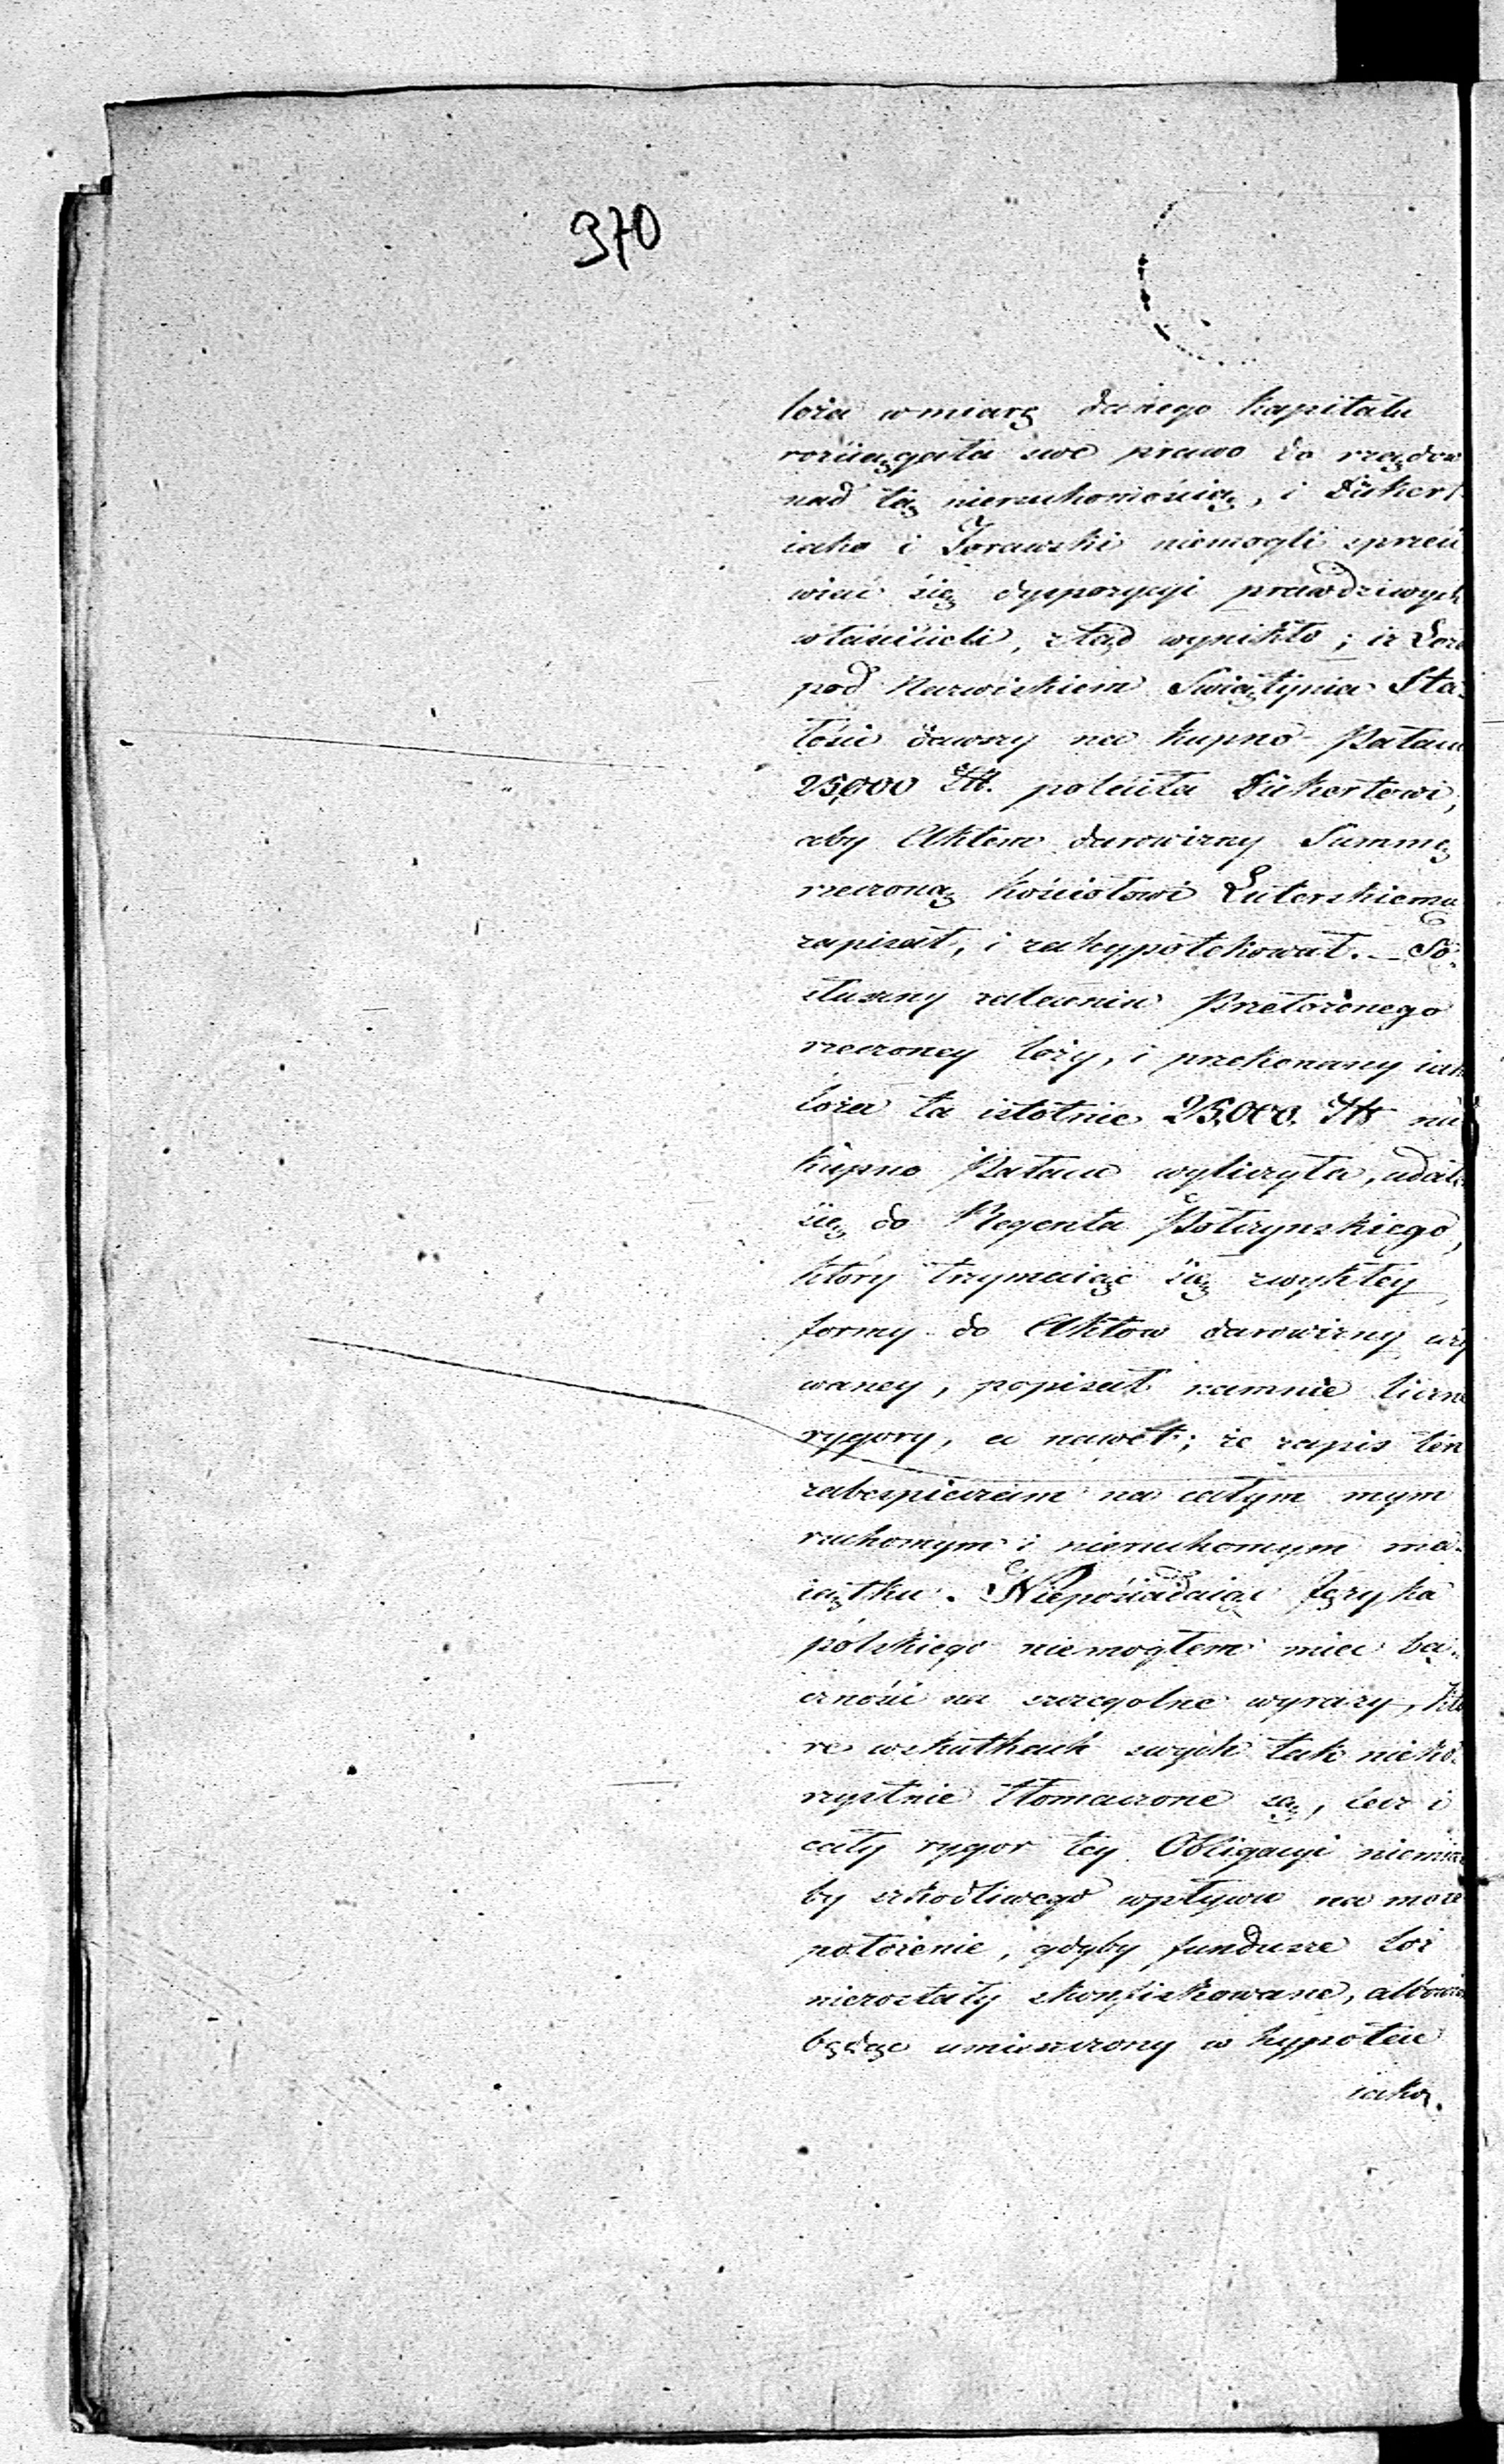 370
loża w miarę danego kapitału
rozciągała swe prawo do rządów
nad tą nieruchomością, i Dükert
iako i Jorawski niemogli sprzeci
wiać się dyspozycyi prawdziwych
właścicieli, ztąd wynikło; iż Loża
pod Nazwiskiem Swiątynia Sta-
łości dawszy na kupno Pałacu
25,000 Złł. poleciła Dükertowi,
aby Aktem darowizny Summę
rzeczoną kościołowi Luterskiemu
zapisał, i zahypotekował. – Po-
słuszny zaleceniu Przełożonego
rzeczoney loży, i przekonany iak
Loża ta istotnie 25,000. Złł na
kupno Pałacu wyliczyła, udał
się do Regenta Półczynskiego,
który trzymaiąc się zwykłey
formy do Aktow darowizny uży
waney, popisał namnie liczne
rygory, a nawet; że zapis ten
zabezpieczam na całym mym
ruchomym i nieruchomym ma-
iątku. Nieposiadaiąc Języka
polskiego niemogłem mieć ba-
czność na szczegolne wyrazy, któ
re w skutkach swych tak nieko-
rzystnie tłomaczone są, lecz i
cały rygor tey Obligacyi niemiał
by szkodliwego wpływu na moie
położenie, gdyby fundusze lóż
niezostały skonfiskowane, albowiem
będąc umieszczony w hypotece
iako.